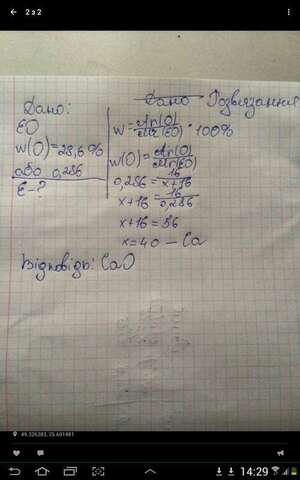 2 з 2
Дано:
ЕО
w(O)=28,6%
або 0,286
Е-?
Дано Розвязання
w=Ar(O)/Mr(EO)·100%
w(O)=Ar(O)/Mr(EO)
0,286=16/x+16
x+16=16/0,286
x+16=56
x=40-Ca
Відповідь: CaO
49.326283, 25.691481
14:29